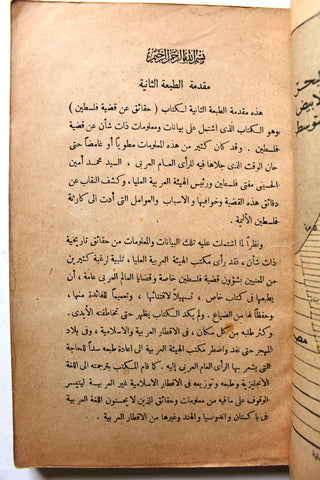 بسم الله الرحمن الرحيم
مقدمة الطبعة الثانية
هذه مقدمة الطبعة الثانية لكتاب ( حقائق عن قضية فلسطين )
وهو الكتاب الذى اشتمل على بيانات ومعلومات ذات شأن عن قضية
فلسطين . وقد كان كثير من هذه المعلومات مطويا أو غامضا حتى
حان الوقت الذى جلاها فيه للرأى العام العربى ، السيد محمد أمين
الحسينى مفتى فلسطين ورئيس الهيئة العربية العليا ، وكشف النقاب عن
دقائق هذه القضية وخوافيها والاسباب والعوامل التى أدت الى كارثة
فلسطين الأليمة .
ونظرا لما اشتملت عليه تلك البيانات والمعلومات من حقائق تاريخية
ذات شأن ، فقد رأى مكتب الهيئة العربية العليا ، تلبية لرغبة كثيرين
من المعنيين بشؤون قضية فلسطين خاصة وقضايا العالم العربى عامة ، أن
يطبعها فى كتاب خاص ، تسهيلا لاقتنائها ، وتعميما للفائدة منها ،
وحفظا لها من الضياع . ولم يكد الكتاب يظهر حتى تخاطفته الأيدى .
وكثر طلبه من كل مكان ، فى الاقطار العربية والاسلامية ، وفى بلاد
المهجر حتى نفد واضطر مكتب الهيئة العربية الى اعادة طبعه سدا للحاجة
التى يشعر بها الرأى العام العربى إليه . كما قام المكتب بترجمته الى اللغة
الانجليزية وطبعه وتوزيعه فى الاقطار الاسلامية غير العربية ليتيسر
الوقوف على ما فيه من معلومات وحقائق الذين لا يحسنون اللغة العربية
فى باكستان واندونسيا والهند وغيرها من الاقطار العربية .